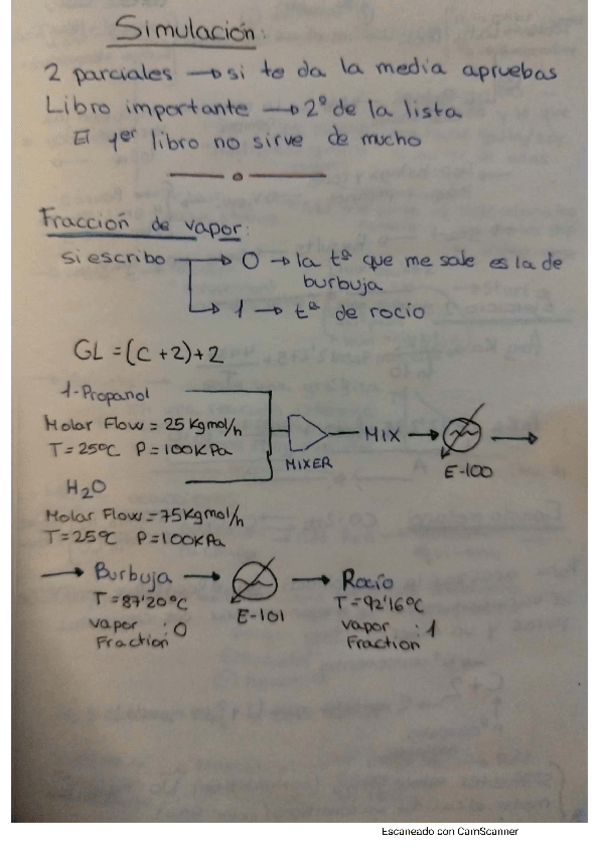 Simulación:
2 parciales → si te da la media apruebas
Libro importante → 2º de la lista
El 1er libro no sirve de mucho
Fracción de vapor:
si escribo → 0 → la tª que me sale es la de
burbuja
→ 1 → tª de rocío
GL = (C + 2) + 2
1-Propanol
Molar Flow = 25 Kgmol/h
T = 25ºC P = 100KPa
MIXER
MIX
E-100
H2O
Molar Flow = 75Kgmol/h
T = 25ºC P = 100KPa
→ Burbuja → → Rocío
T = 87'20ºC E-101 T = 92'16ºC
vapor : 0 vapor : 1
Fraction Fraction
Escaneado con CamScanner